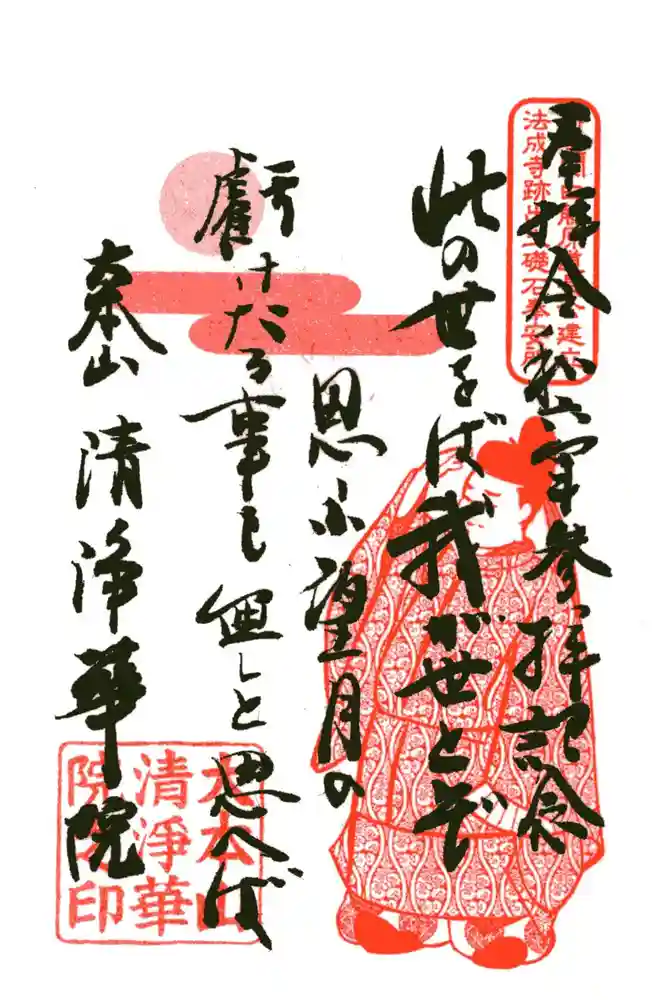 奉拝 令和六年参拝記念
関白藤原道長公建立
法成寺跡出土礎石奉安所
此の世をば我が世とぞ
思ふ望月の
虧けたる事も無しと思へば
大本山 清浄華院
大本山
清淨華
院之印